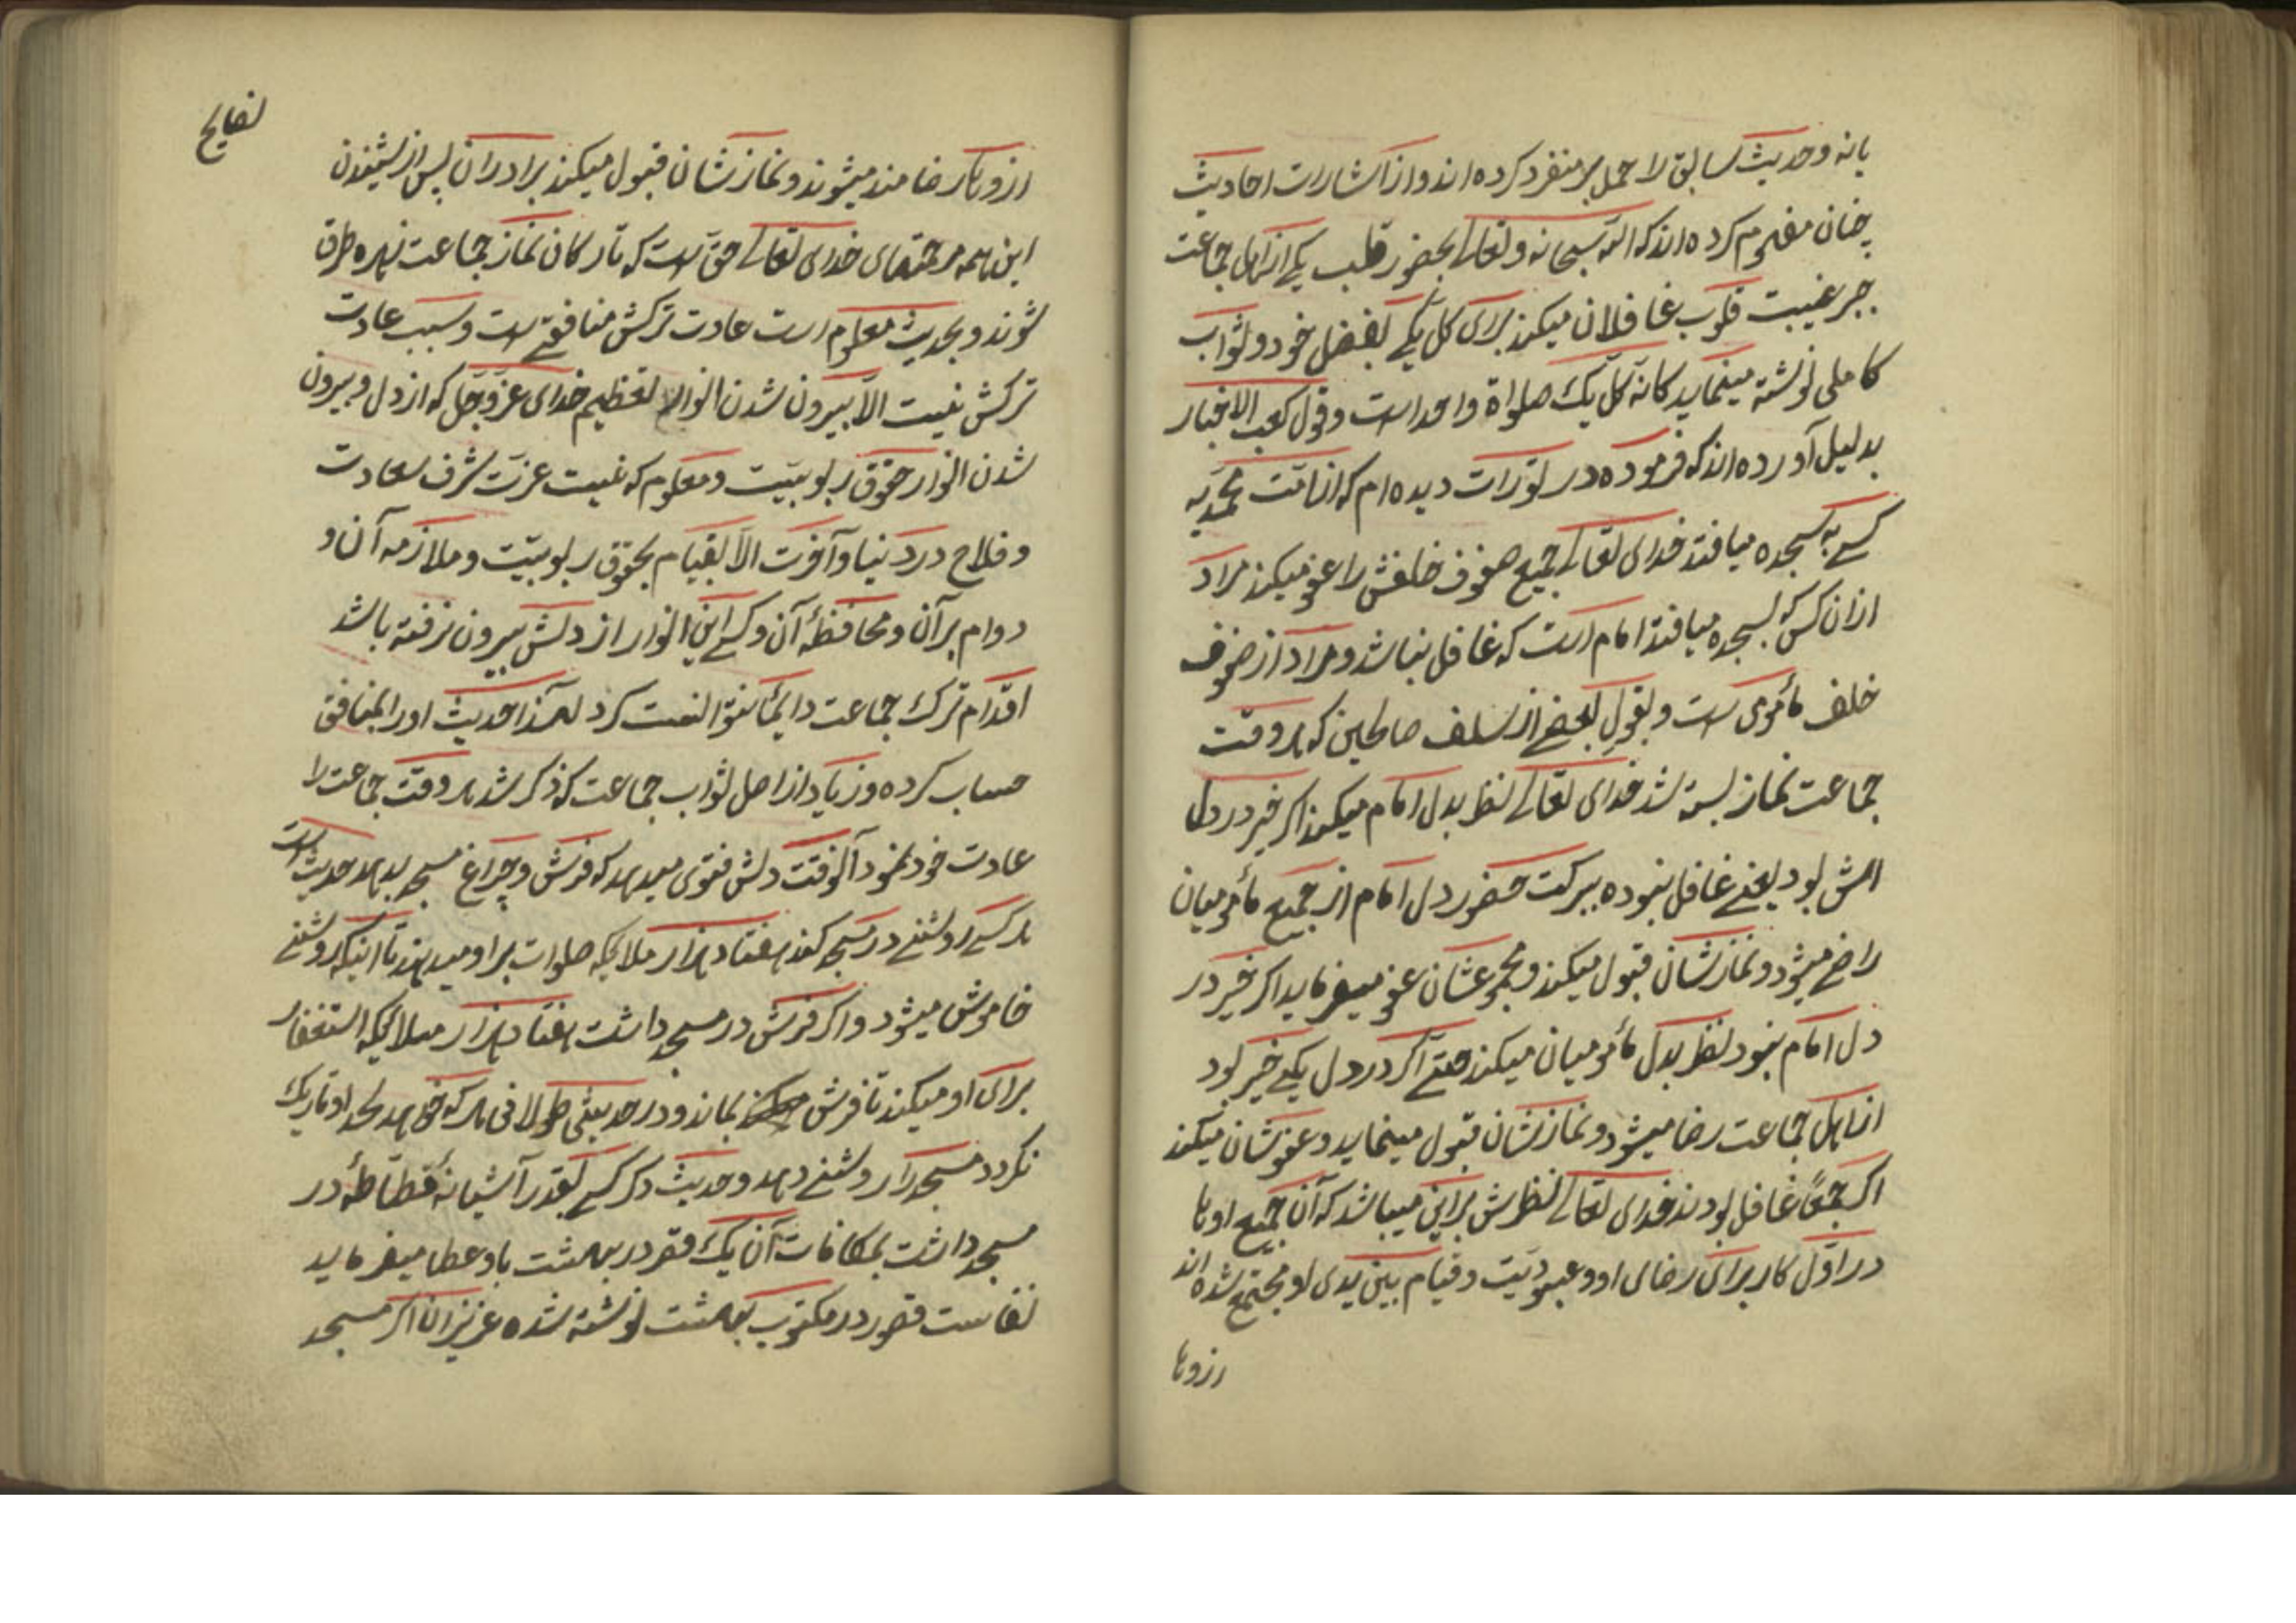 یا نه و حدیث سابق لا حمل بر منفرد کرده‌اند و از اشارات احادیث
چنان مفهوم کرده‌اند که الله سبحانه و تعالی بحضور قلب یکی از اهل جماعت
جبر غیبت قلوب غافلان میکند برای کل یکی بفضل خود و ثواب
کاملی نوشته مینماید کانه کل یک صلواة واحد است و قول کعب الاخبار
بدلیل آورده‌اند که فرموده در تورات دیده‌ام که از امّت محمّدیّه
کسی به سجده میافتد خدای تعالی جمیع صفوف خلفش را عفو میکند مراد
از ان کس که بسجده میافتد امام است که غافل نباشد و مراد از صفوف
خلف مأمومی است و بقول بعضی از سلف صالحین که هر وقت
جماعت نماز بسته شد خدای تعالی نظر بدل امام میکند اکر خیر در دل
امش بود یعنی غافل نبوده ببرکت حضور دل امام از جمیع مأمومیان
راضی میشود و نمازشان قبول میکند و مجموعشان عفو میفرماید اکر خیر در
دل امام نبود نظر بدل مأمومیان میکند حتی اکر در دل یکی خیر بود
از اهل جماعت رضا میشود و نمازشان قبول مینماید و عفوشان میکند
اکر جمعًا غافل بودند خدای تعالی نظرش براین میباشد که آن جمیع اوها
در اوّل کار برای رضای او و عبودیّت و قیام بین یدی او مجتمع شده‌اند
ازوها
نصایح
ازوها رضامند میشوند و نمازشان قبول میکند برادران پس از شنیدن
این همه مرحمتهای خدای تعالی حق است که تارکان نماز جماعت
شوند و بحدیث معلوم است عادت ترکش منافقی است و سبب عادت
ترکش نیست الّا بیرون شدن انوار تعظیم خدای عزّ وجلّ که از دل و بیرون
شدن انوار حقوق ربوبیّت و معلوم که نیست عزّت شرف سعادت
و فلاح در دنیا و آخرت الّا بقیام بحقوق ربوبیّت و ملازمه آن و
دوام بر آن و محافظهٔ آن و کسی این انوار از دلش بیرون نرفته باشد
اقدام ترک جماعت دایمًا نتوانست کرد لهذا حدیث اورا بمنافق
حساب کرده و زیاد از اصل ثواب جماعت که ذکر شد هر وقت جماعت را
عادت خود نمود آنوقت دلش فتوی میدهد که فرش و چراغ مسجد بدهد حدیث است
هر کسی روشنی در مسجد کند هفتاد هزار ملایکه صلوات بر او میدهند تا اینکه روشنی
خاموش میشود و اکر فرش در مسجد داشت هفتاد هزار ملایکه استغفار
برای او میکند تا فرش بماند و در حدیثی طولانی هر که خواهد لحد او تاریک
نکردد مسجد را روشنی دهد و حدیث دکر کسی بقدر آشیانهٔ قطاطهٔ در
مسجد داشت بمکافات آن یک قصر در بهشت باو عطا میفرماید
نفاست قصور در مکتوب بهشت نوشته شده عزیزان اکر مسجد